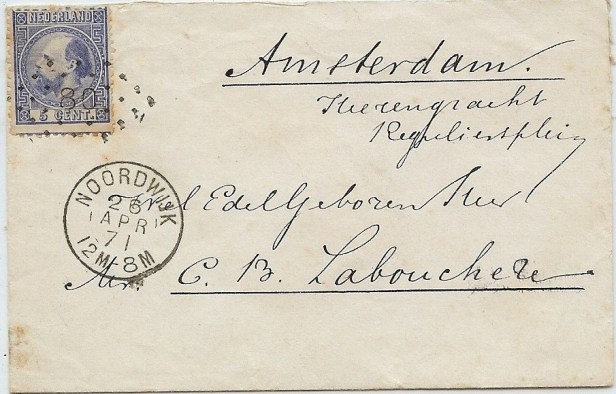 NEDERLAND
5 CENT.
Amsterdam.
Heerengracht
Reguliersplein
NOORDWIJK
26
APR
71
12M-8M
Wel EdelGeboren Heer
Mr. C. B. Labouchere